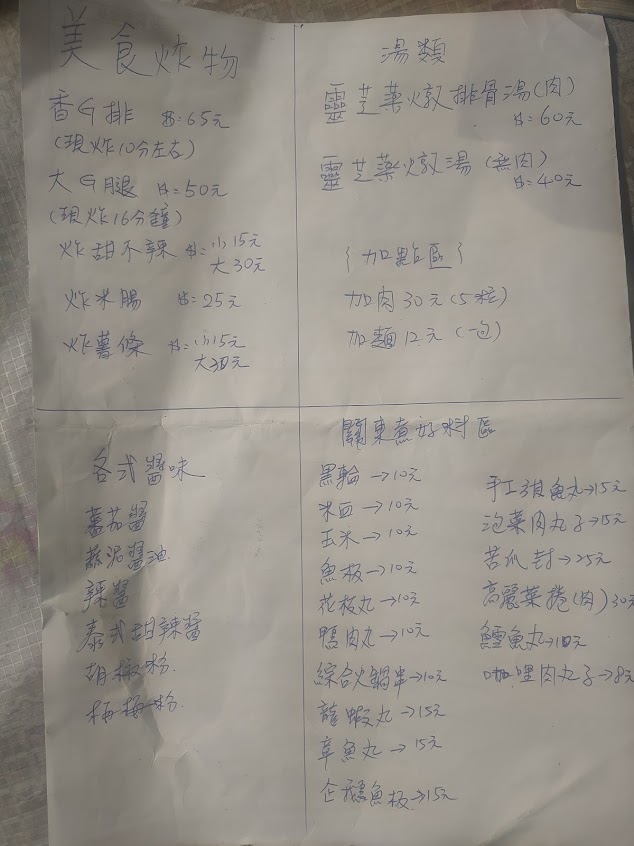 美食炸物
香G排 $=65元
(現炸10分左右)
大G腿 $=50元
(現炸16分鐘)
炸甜不辣 $=小15元
大30元
炸米腸 $=25元
炸薯條 $=小15元
大30元
湯類
靈芝藥燉排骨湯(肉)
$=60元
靈芝藥燉湯 (無肉)
$=40元
{加點區}
加肉30元(5粒)
加麵12元 (一包)
各式醬味
蕃茄醬
蒜泥醬油
辣醬
泰式甜辣醬
胡椒粉
梅梅粉
關東煮好料區
黑輪→10元
米血→10元
玉米→10元
魚板→10元
花枝丸→10元
鴨肉丸→10元
綜合火鍋串→10元
龍蝦丸→15元
章魚丸→15元
企鵝魚板→15元
手工旗魚丸→15元
泡菜肉丸子→15元
苦瓜封→25元
高麗菜捲(肉)30元
鱈魚丸→10元
咖哩肉丸子→8元